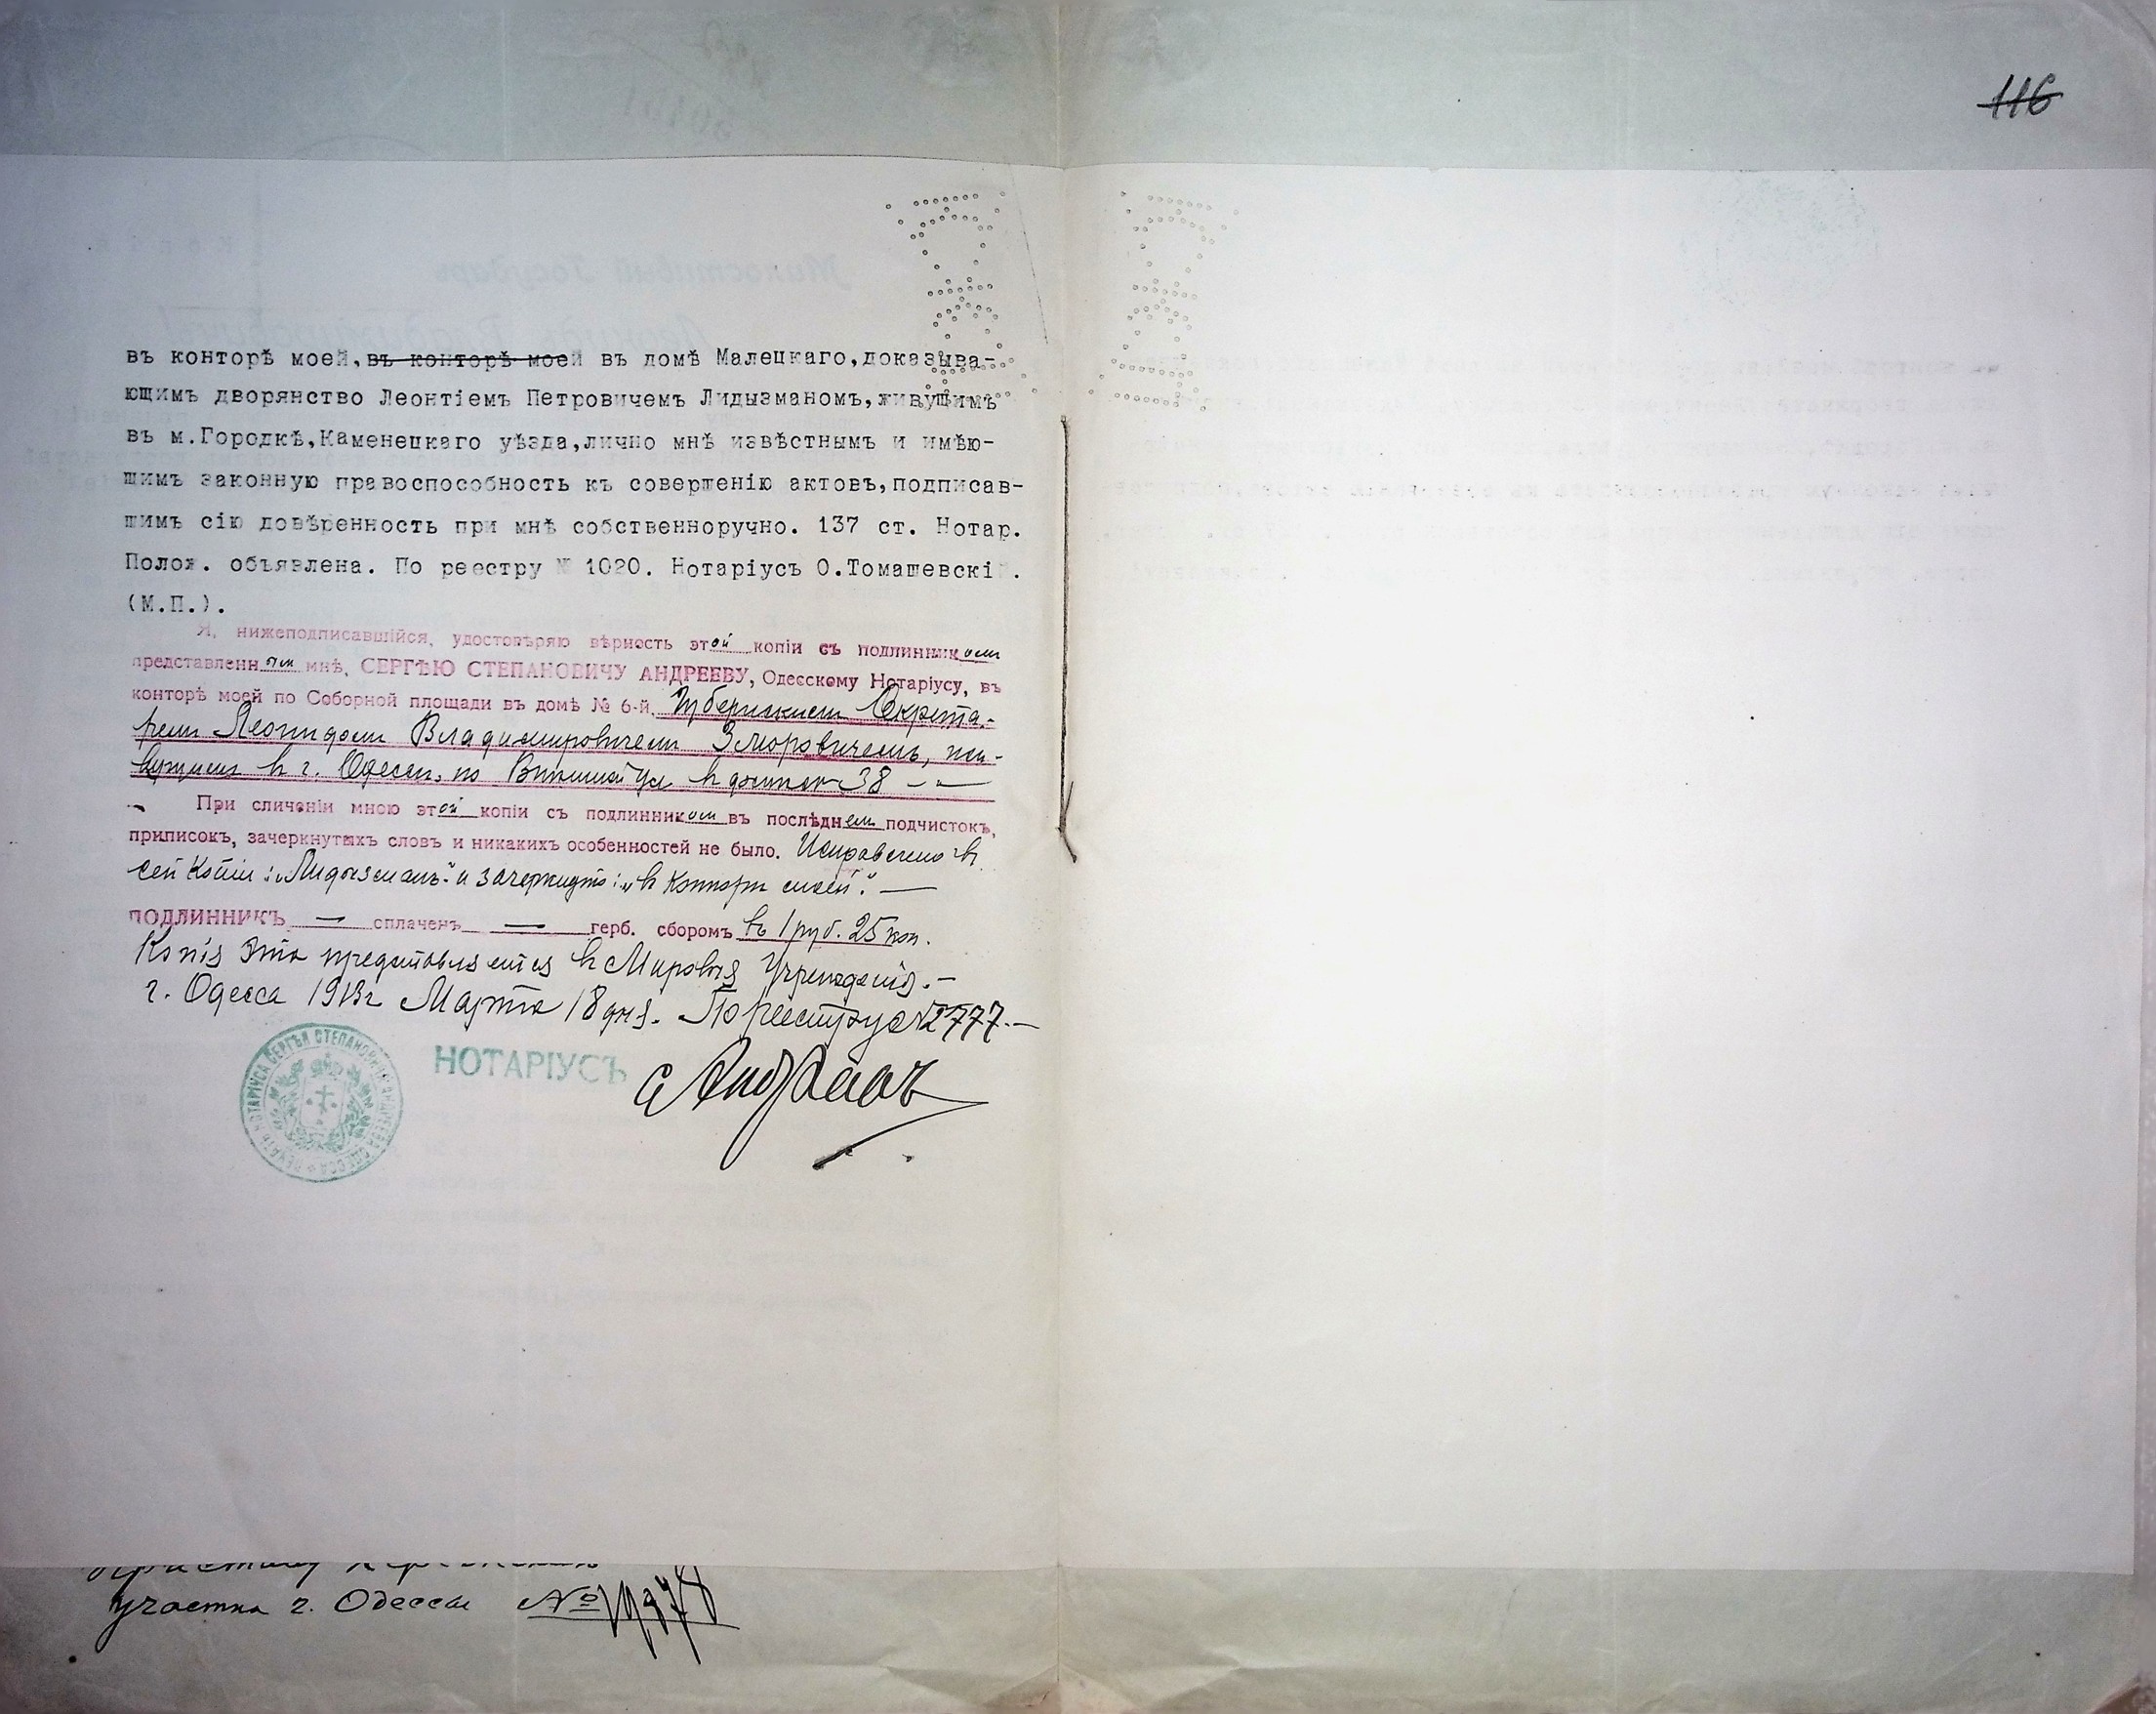 116
въ конторѣ моей,въ конторѣ моей въ домѣ Малецкаго,доказыва-
ющимъ дворянство Леонтіемъ Петровичемъ Лидызманомъ,живущимъ
въ м.Городкѣ,Каменецкаго уѣзда,лично мнѣ извѣстнымъ и имѣю-
щимъ законную правоспособность къ совершенію актовъ,подписав-
шимъ сію довѣренность при мнѣ собственноручно. 137 ст. Нотар.
Полож. объявлена. По реестру № 1020. Нотаріусъ О.Томашевскій.
(М.П.).
Я, нижеподписавшійся, удостовѣряю вѣрность этой копіи съ подлинникомъ
представленнымъ мнѣ, СЕРГѢЮ СТЕПАНОВИЧУ АНДРЕЕВУ, Одесскому Нотаріусу, въ
конторѣ моей по Соборной площади въ домѣ № 6-й, Губернскимъ Секрета-
ремъ Леонидомъ Владиміровичемъ Зморовичемъ, жи-
вущимъ въ г. Одессѣ, по ул. въ домѣ № 38
При сличеніи мною этой копіи съ подлинникомъ въ послѣднемъ подчистокъ,
приписокъ, зачеркнутыхъ словъ и никакихъ особенностей не было. Исправлено въ
сей копіи: „Лидызманъ" и зачеркнуто: „въ конторѣ моей". —
ПОДЛИННИКЪ — сплаченъ — герб. сборомъ въ 1 руб. 25 коп.
Копія эта представляется въ Мировыя Учрежденія. —
г. Одесса 1913 г Марта 18 дня. По реестру № 2777. —
НОТАРІУСЪ С Андреевъ
ПЕЧАТЬ НОТАРІУСА СЕРГѢЯ СТЕПАНОВИЧА АНДРЕЕВА ОДЕССА
Приставу Херсонскаго
участка г. Одессы №